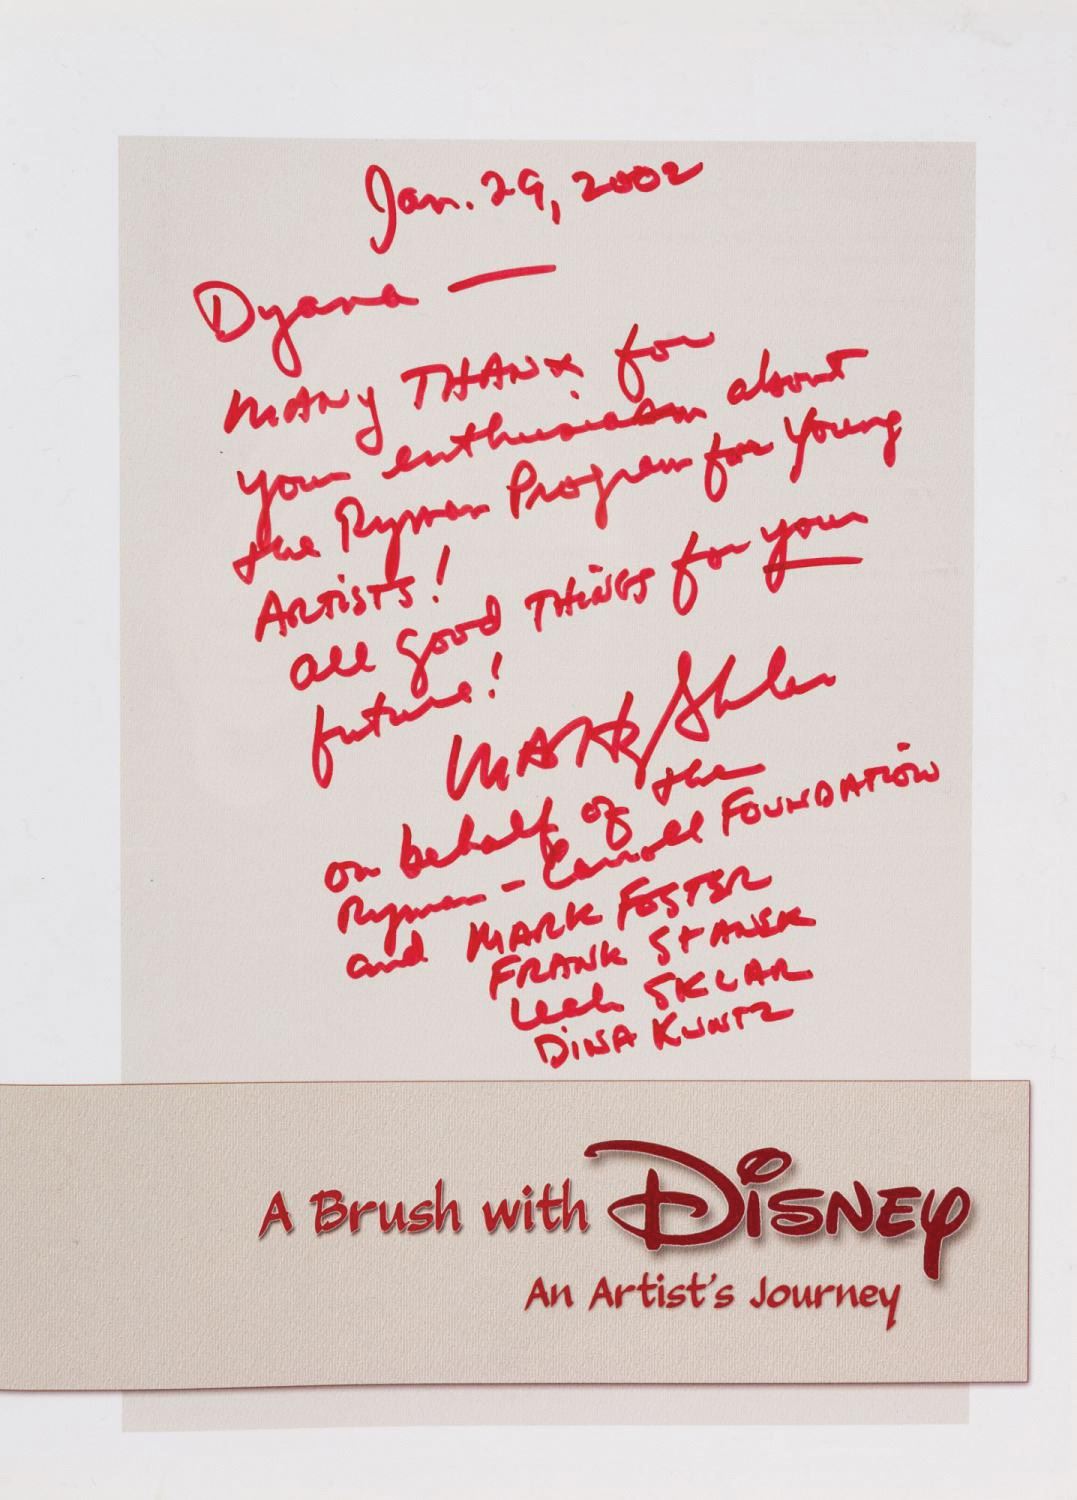 Jan. 29, 2002
Dyana —
MANY THANX for
your enthusiasm about
the Ryman Program for Young
ARTISTS!
All good THINGS for your
future!
MARTY Sklar
on behalf of the
Ryman - Carroll FOUNDATION
and MARK FOSTER
FRANK STANEK
Leah SKLAR
DINA KUNTZ
A Brush with Disney
An Artist's Journey